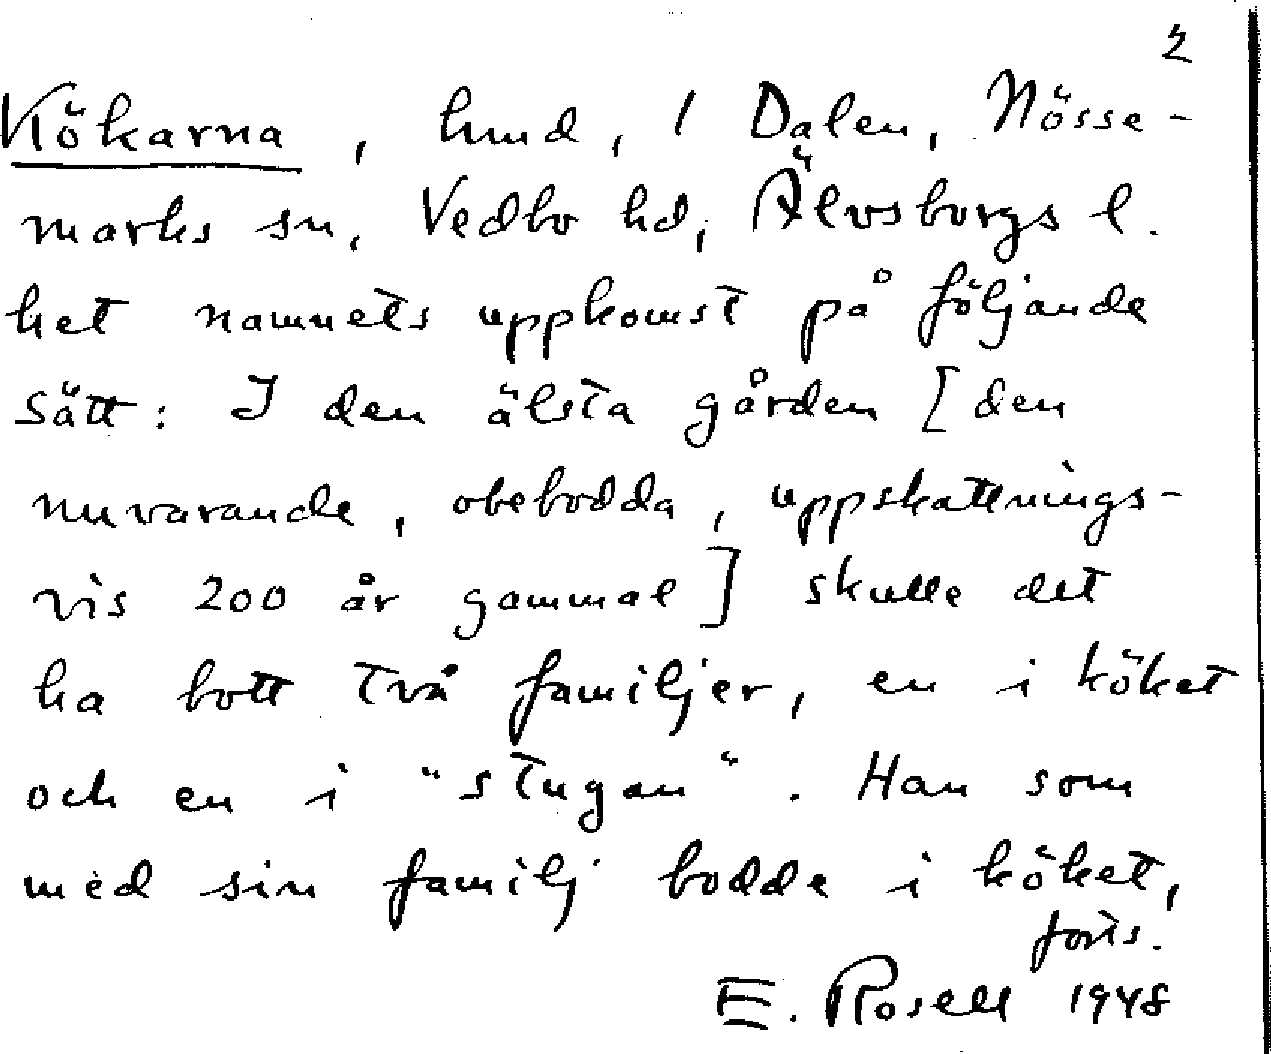 2
Kökarna, hmd, 1 Dalen, Nösse-
marks sn, Vedbo hd, Älvsborgs l.
het namnets uppkomst på följande
sätt: I den älsta gården [den
nuvarande, obebodda, uppskattnings-
vis 200 år gammal] skulle det
ha bott två familjer, en i köket
och en i "stugan". Han som
med sin familj bodde i köket,
forts.
E. Rosell 1948